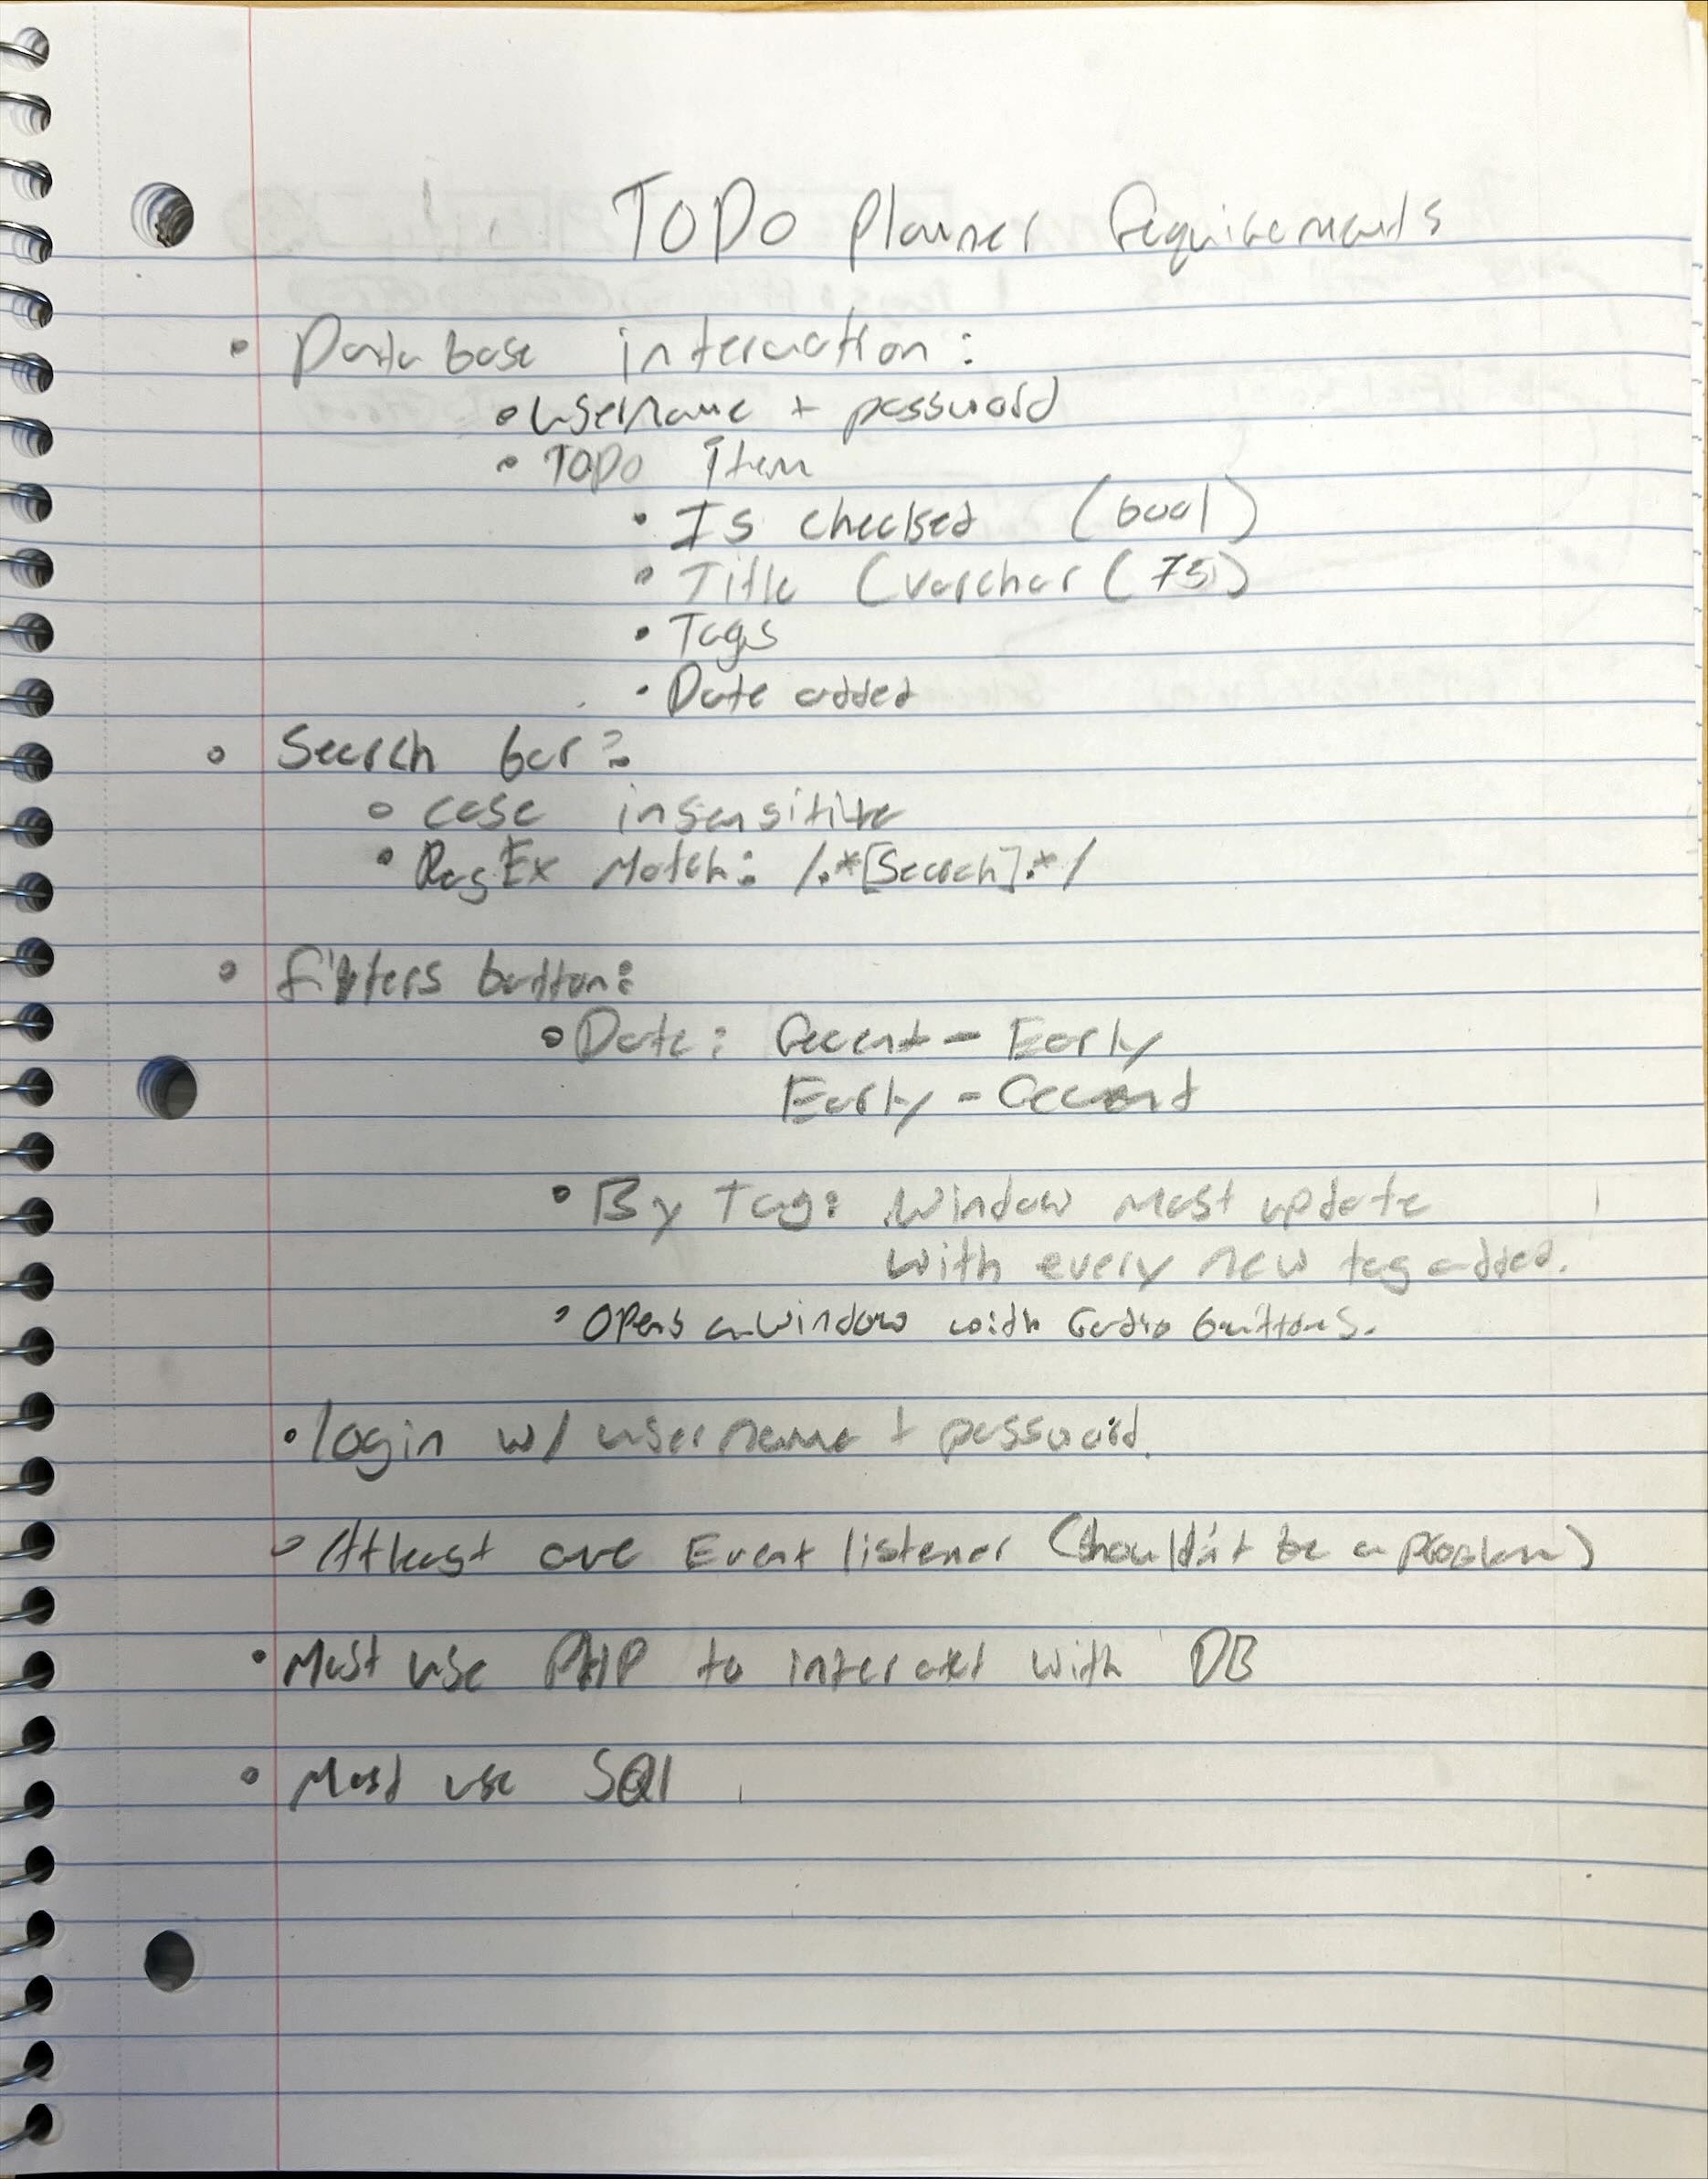 TODO Planner Requirements
• Database interaction:
• username + password
• TODO Item
• Is checked (bool)
• Title (varchar(75)
• Tags
• Date added
• Search bar:
• case insensitive
• RegEx Match: /.*[Search].*/
• Filters button:
• Date: Recent - Early
Early - Recent
• By Tag: Window Must update
with every new tag added.
• Opens a window with radio buttons.
• login w/ username + password.
• Atleast one Event listener (Shouldn't be a problem)
• Must use PHP to interact with DB
• Must use SQl